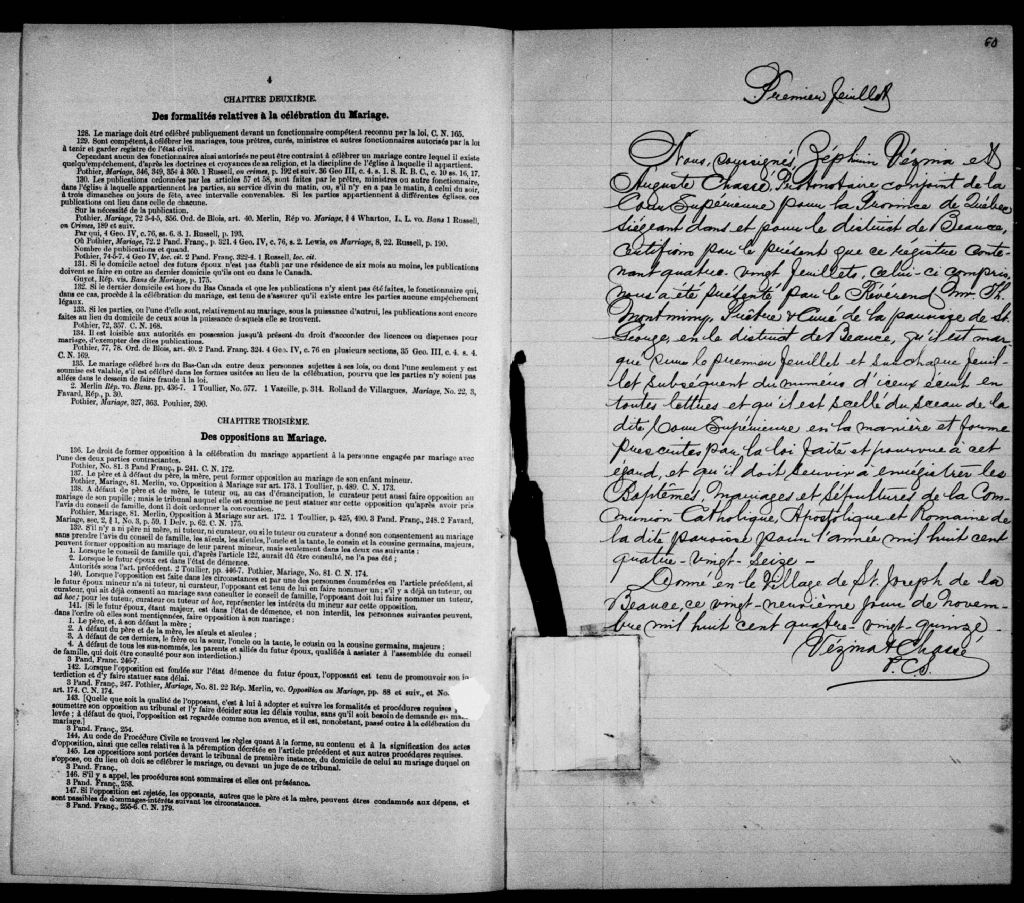 4
CHAPITRE DEUXIÈME.
Des formalités relatives à la célébration du Mariage.
128. Le mariage doit être célébré publiquement devant un fonctionnaire compétent reconnu par la loi, C. N. 165.
129. Sont compétent, à célébrer les mariages, tous prêtres, curés, ministres et autres fonctionnaires autorisés par la loi
à tenir et garder registre de l'état civil.
Cependant aucun des fonctionnaires ainsi autorisés ne peut être contraint à célébrer un mariage contre lequel il existe
quelqu'empêchement, d'après les doctrines et croyances de sa religion, et la discipline de l'église à laquelle il appartient.
Pothier, Mariage, 346, 349, 354 à 360. 1 Russell, on crimes, p. 192 et suiv. 36 Geo III, c. 4, s. 1. S. R. B. C., c. 10 ss. 16, 17.
130. Les publications ordonnées par les articles 57 et 58, sont faites par le prêtre, ministres ou autre fonctionnaire,
dans l'église à laquelle appartiennent les parties, au service divin du matin, ou, s'il n'y en a pas le matin, à celui du soir,
à trois dimanches ou jours de fête, avec intervalle convenables. Si les parties appartiennent à différentes églises, ces
publications ont lieu dans celle de chacune.
Sur la nécessité de la publication.
Pothier, Mariage, 72 3-4-5, 356. Ord. de Blois, art. 40. Merlin, Rép vo. Mariage, § 4 Wharton, L. L. vo. Bans 1 Russell,
on Crimes, 189 et suiv.
Par qui, 4 Geo. IV, c. 76, ss. 6. 8. 1. Russell, p. 193.
Où Pothier, Mariage, 72. 2 Pand. Franç., p. 321. 4 Geo. IV, c. 76, s. 2. Lewis, on Marriage, 8, 22. Russell, p. 190.
Nombre de publications et quand.
Pothier, 74-5-7. 4 Geo IV, loc. cit. 2 Pand. Franç. 322-4. 1 Russell, loc. cit.
131. Si le domicile actuel des futurs époux n'est pas établi par une résidence de six mois au moins, les publications
doivent se faire en outre au dernier domicile qu'ils ont eu dans le Canada.
Guyot, Rép. vis. Bans de Mariage, p. 175.
132. Si le dernier domicile est hors du Bas Canada et que les publications n'y aient pas été faites, le fonctionnaire qui,
dans ce cas, procède à la célébration du mariage, est tenu de s'assurer qu'il existe entre les parties aucune empêchement
légaux.
133. Si les parties, ou l'une d'elle sont, relativement au mariage, sous la puissance d'autrui, les publications sont encore
faites au lieu du domicile de ceux sous la puissance desquels elle se trouvent.
Pothier, 72, 357. C. N. 168.
134. Il est loisible aux autorités en possession jusqu'à présent du droit d'accorder des licences ou dispenses pour
mariage, d'exempter des dites publications.
Pothier, 77, 78. Ord. de Blois, art. 40. 2 Pand. Franç. 324. 4 Geo. IV, c. 76 en plusieurs sections, 35 Geo. III, c. 4. s. 4.
C. N. 169.
135. Le mariage célébré hors du Bas-Canada entre deux personnes sujettes à ses lois, ou dont l'une seulement y est
soumise est valable, s'il est célébré dans les formes usitées au lieu de la célébration, pourvu que les parties n'y soient pas
allées dans le dessein de faire fraude à la loi.
2. Merlin Rép. vo. Bans, pp. 436-7. 1 Toullier, No. 577. 1 Vazeille, p. 314. Rolland de Villargues, Mariage, No. 22, 3,
Favard, Rép., p. 30.
Pothier, Mariage, 327, 363. Pouhier, 390.
CHAPITRE TROISIÈME.
Des oppositions au Mariage.
136. Le droit de former opposition à la célébration du mariage appartient à la personne engagée par mariage avec
l'une des deux parties contractantes.
Pothier, No. 81. 3 Pand Franç., p. 241. C. N. 172.
137. Le père et à défaut du père, la mère, peut former opposition au mariage de son enfant mineur.
Pothier, Mariage, 81. Merlin, vo. Opposition à Mariage sur art. 173. 1 Toullier, p. 489. C. N. 173.
138. A défaut de père et de mère, le tuteur ou, au cas d'émancipation, le curateur peut aussi faire opposition au
mariage de son pupille; mais le tribunal auquel elle est soumise ne peut statuer sur cette opposition qu'après avoir pris
l'avis du conseil de famille, dont il doit ordonner la convocation.
Pothier, Mariage, 81. Merlin, Opposition à Mariage sur art. 172. 1 Toullier, p. 425, 490. 3 Pand. Franç., 248. 2 Favard,
Mariage, sec. 2, § 1, No. 3, p. 59. 1 Delv. p. 62. C. N. 175.
139. S'il n'y a ni père ni mère, ni tuteur, ni curateur, ou si le tuteur ou curateur a donné son consentement au mariage
sans prendre l'avis du conseil de famille, les aïeuls, les aïeules, l'oncle et la tante, le consin et la cousine germains, majeurs,
peuvent former opposition au mariage de leur parent mineur, mais seulement dans les deux cas suivants:
1. Lorsque le conseil de famille qui, d'après l'article 122, aurait dû être consulté, ne l'a pas été;
2. Lorsque le futur époux est dans l'état de démence.
Autorités sous l'art. précédent. 2 Toullier, pp. 446-7. Pothier, Mariage, No. 81. C. N. 174.
140. Lorsque l'opposition est faite dans les circonstances et par une des personnes énumérées en l'article précédent, si
le futur époux mineur n'a ni tuteur, ni curateur, l'opposant est tenu de lui en faire nommer un; s'il y a déjà un tuteur, ou
curateur, qui ait déjà consenti au mariage sans consulter le conseil de famille, l'opposant doit lui faire nommer un tuteur,
ad hoc; pour les tuteur, curateur ou tuteur ad hoc, représenter les intérêts du mineur sur cette opposition.
141. [Si le futur époux, étant majeur, est dans l'état de démence, et non interdit, les personnes suivantes peuvent,
dans l'ordre où elles sont mentionées, faire opposition à son mariage:
1. Le père, et à son défaut la mère;
2. A défaut du père et de la mère, les aïeuls et aïeules;
3. A défaut de ces derniers, le frère ou la sœur, l'oncle ou la tante, le cousin ou la cousine germains, majeurs;
4. A défaut de tous les sus-nommés, les parents et alliés du futur époux, qualifiés à assister à l'assemblée du conseil
de famille, qui doit être consulté pour son interdiction.)
3 Pand. Franç. 246-7.
142. Lorsque l'opposition est fondée sur l'état démence du futur époux, l'opposant est tenu de promouvoir son in-
terdiction et d'y faire statuer sans délai.
3 Pand. Franç., 247. Pothier, Mariage, No. 81. 22 Rép. Merlin, vc. Opposition au Mariage, pp. 88 et suiv., et No.
art. 174. C. N. 174.
143. [Quelle que soit la qualité de l'opposant, c'est à lui à adopter et suivre les formalités et procédures requises
soumettre son opposition au tribunal et l'y faire décider sous les délais voulus, sans qu'il soit besoin de demande en main
levée; à défaut de quoi, l'opposition est regardée comme non avenue, et il est, nonobstant, passé outre à la célébration du
mariage.]
3 Pand. Franç., 254.
144. Au code de Procédure Civile se trouvent les règles quant à la forme, au contenu et à la signification des actes
d'opposition, ainsi que celles relatives à la péremption décrétée en l'article précédent et aux autres procédures requises.
145. Les oppositions sont portées devant le tribunal de première instance, du domicile de celui au mariage duquel on
s'oppose, ou du lieu où doit se célébrer le mariage, ou devant un juge de ce tribunal.
3 Pand. Franç.,
146. S'il y a appel, les procédures sont sommaires et elles ont préséance.
3 Pand. Franç., 258.
147. Si l'opposition est rejetée, les opposants, autres que le père et la mère, peuvent être condamnés aux dépens, et
sont passibles de dommages-intérêts suivant les circonstances.
3 Pand. Franç., 255-6. C. N. 179.
60
Premier feuillet
Nous, soussignés, Zéphirin Vézina et
Auguste Chassé, Protonotaire conjoint de la
Cour Supérieure pour la Province de Québec
siégeant dans et pour le district de Beauce,
certifions par le présent que ce régistre conte-
nant quatre-vingt feuillets, celui-ci compris,
nous a été présenté par le Révérend Mr. Th.
Montminy, Prêtre & Curé de la paroisse de St.
George, en le district de Beauce, qu'il est mar-
qué sur le premier feuillet et sur chaque feuil-
let subséquent du numéro d'iceux écrit en
toutes lettres et qu'il est scellé du sceau de la
dite Cour Supérieure en la manière et forme
prescrites par la loi faite et pourvue à cet
égard, et qu'il doit servir à enrégistrer les
Baptêmes, Mariages et Sépultures de la Com-
munion Catholique, Apostolique et Romaine de
la dite paroisse pour l'année mil huit cent
quatre-vingt-seize -
Donné en le Village de St. Joseph de la
Beauce, ce vingt-neuvième jour de novem-
bre mil huit cent quatre-vingt-quinze -
Vézina & Chassé
P.C.S.